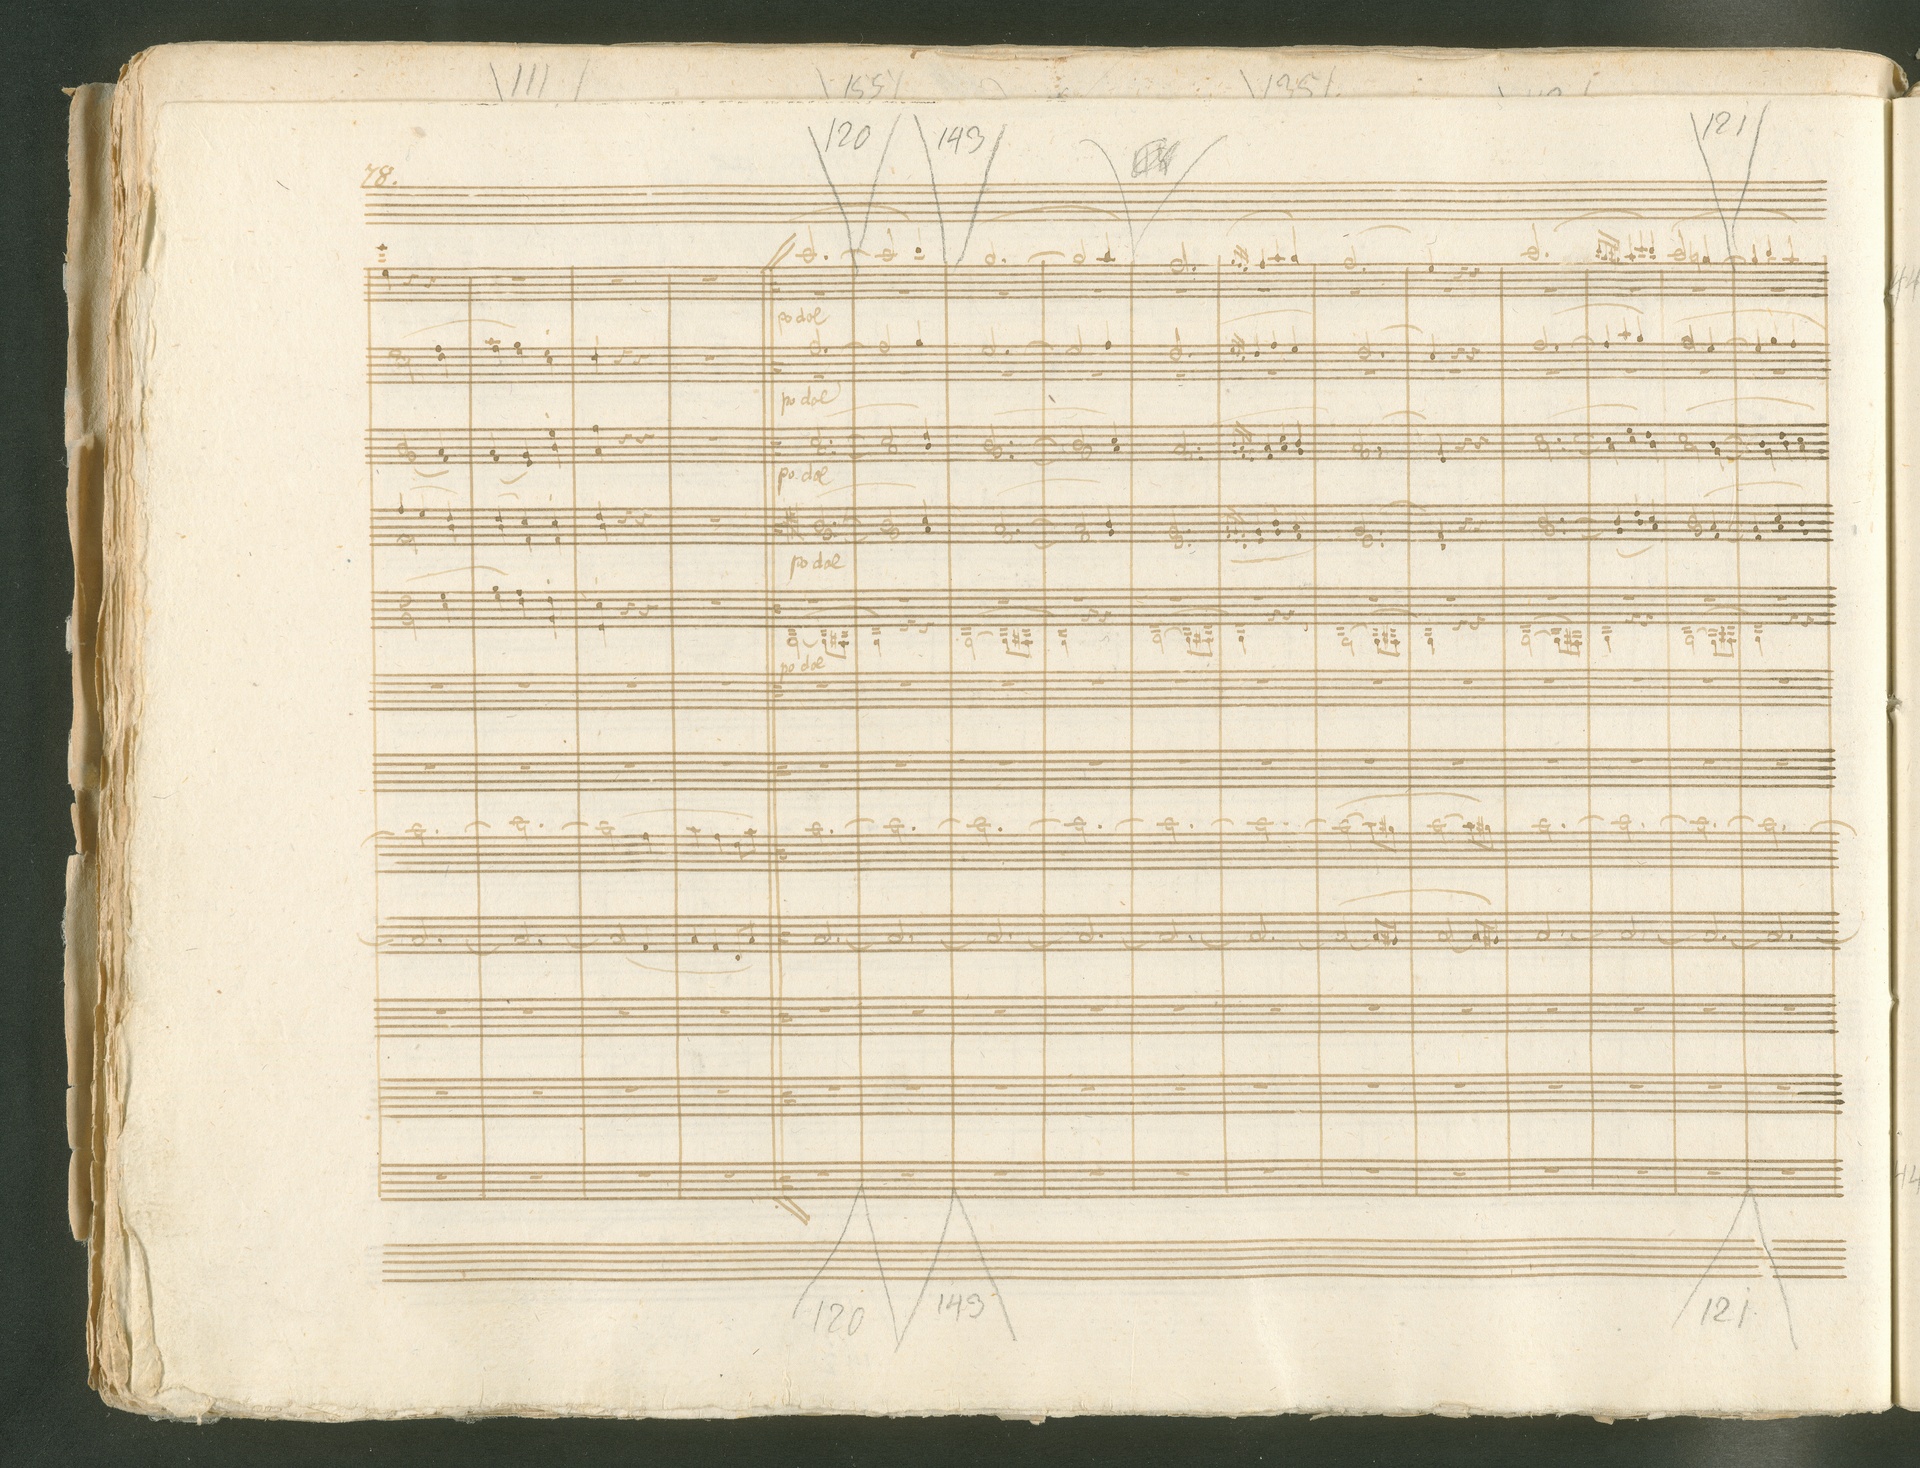 111
155
135
120 143 121
78.
po dol
po dol
po. dol
po dol
po dol
120 143 121